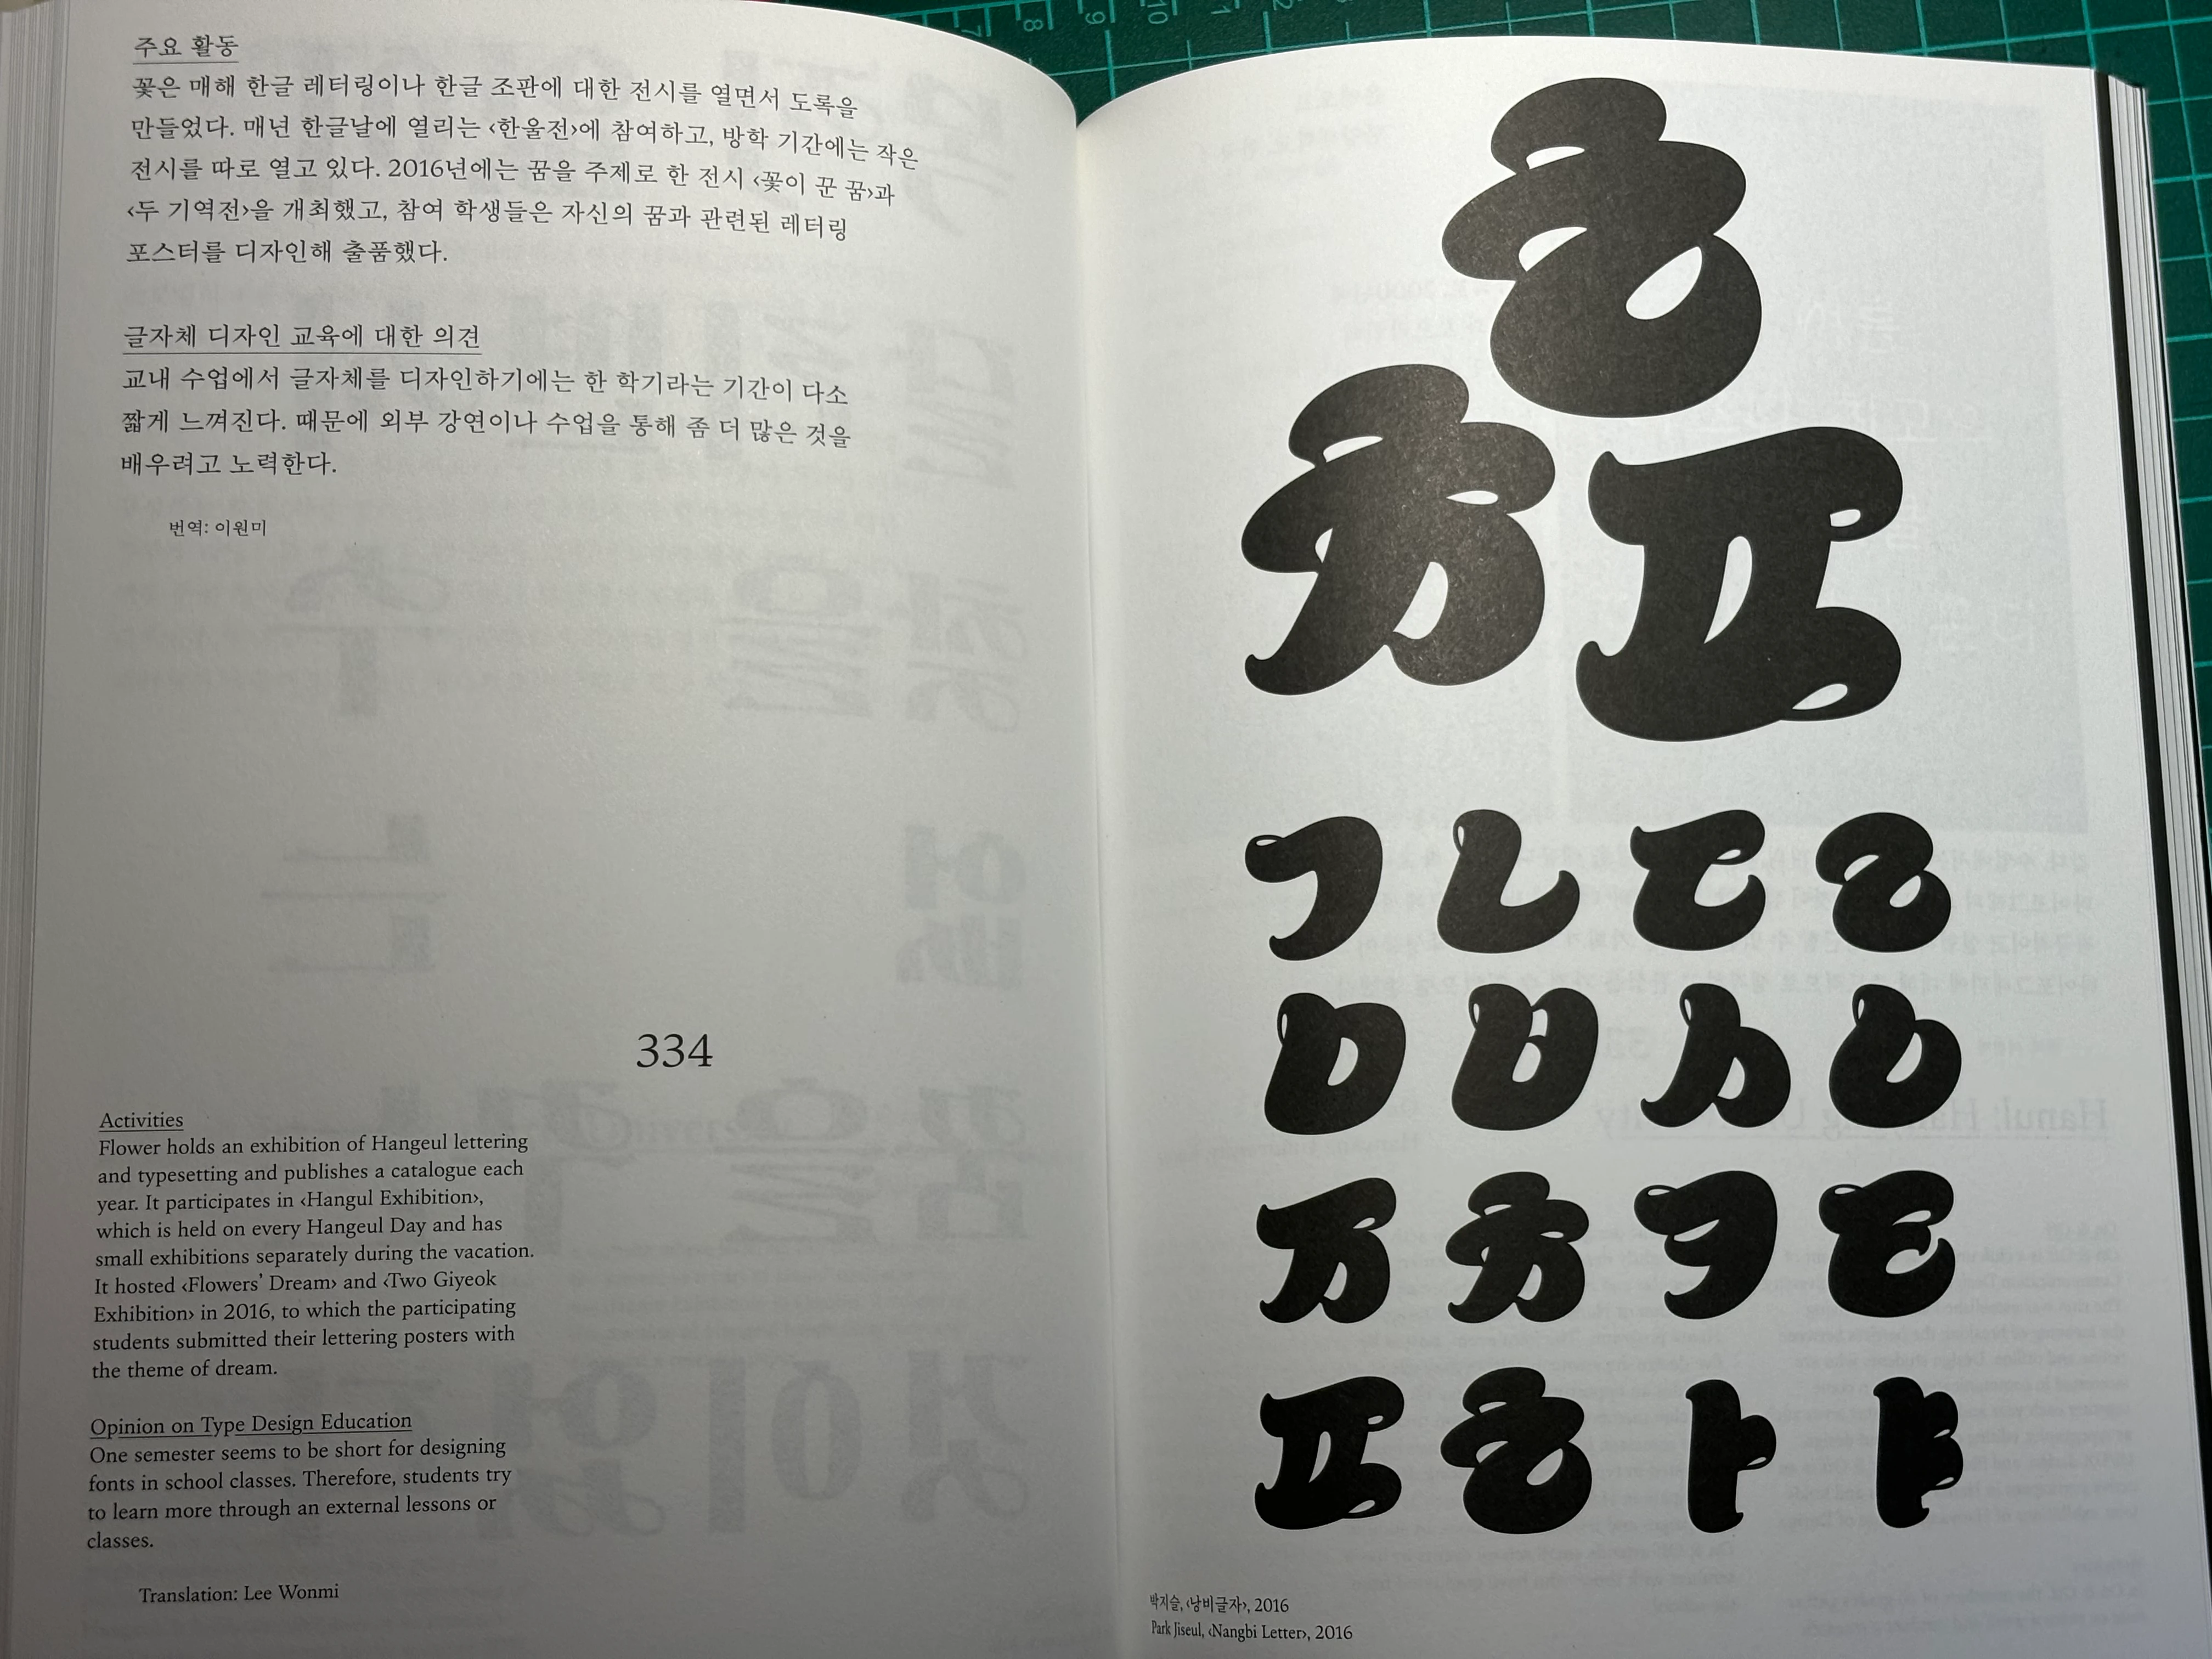 주요 활동
꽃은 매해 한글 레터링이나 한글 조판에 대한 전시를 열면서 도록을
만들었다. 매년 한글날에 열리는 ‹한울전›에 참여하고, 방학 기간에는 작은
전시를 따로 열고 있다. 2016년에는 꿈을 주제로 한 전시 ‹꽃이 꾼 꿈›과
‹두 기역전›을 개최했고, 참여 학생들은 자신의 꿈과 관련된 레터링
포스터를 디자인해 출품했다.
글자체 디자인 교육에 대한 의견
교내 수업에서 글자체를 디자인하기에는 한 학기라는 기간이 다소
짧게 느껴진다. 때문에 외부 강연이나 수업을 통해 좀 더 많은 것을
배우려고 노력한다.
번역: 이원미
334
Activities
Flower holds an exhibition of Hangeul lettering
and typesetting and publishes a catalogue each
year. It participates in ‹Hangul Exhibition›,
which is held on every Hangeul Day and has
small exhibitions separately during the vacation.
It hosted ‹Flowers’ Dream› and ‹Two Giyeok
Exhibition› in 2016, to which the participating
students submitted their lettering posters with
the theme of dream.
Opinion on Type Design Education
One semester seems to be short for designing
fonts in school classes. Therefore, students try
to learn more through an external lessons or
classes.
Translation: Lee Wonmi
ㅎ
ㅊ ㅍ
ㄱ ㄴ ㄷ ㄹ
ㅁ ㅂ ㅅ ㅇ
ㅈ ㅊ ㅋ ㅌ
ㅍ ㅎ ㅏ ㅑ
박지슬, ‹낭비글자›, 2016
Park Jiseul, ‹Nangbi Letter›, 2016
7 8 9 10 11 12